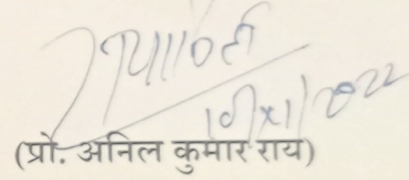 10/x1/2022
(प्रो. अनिल कुमार राय)